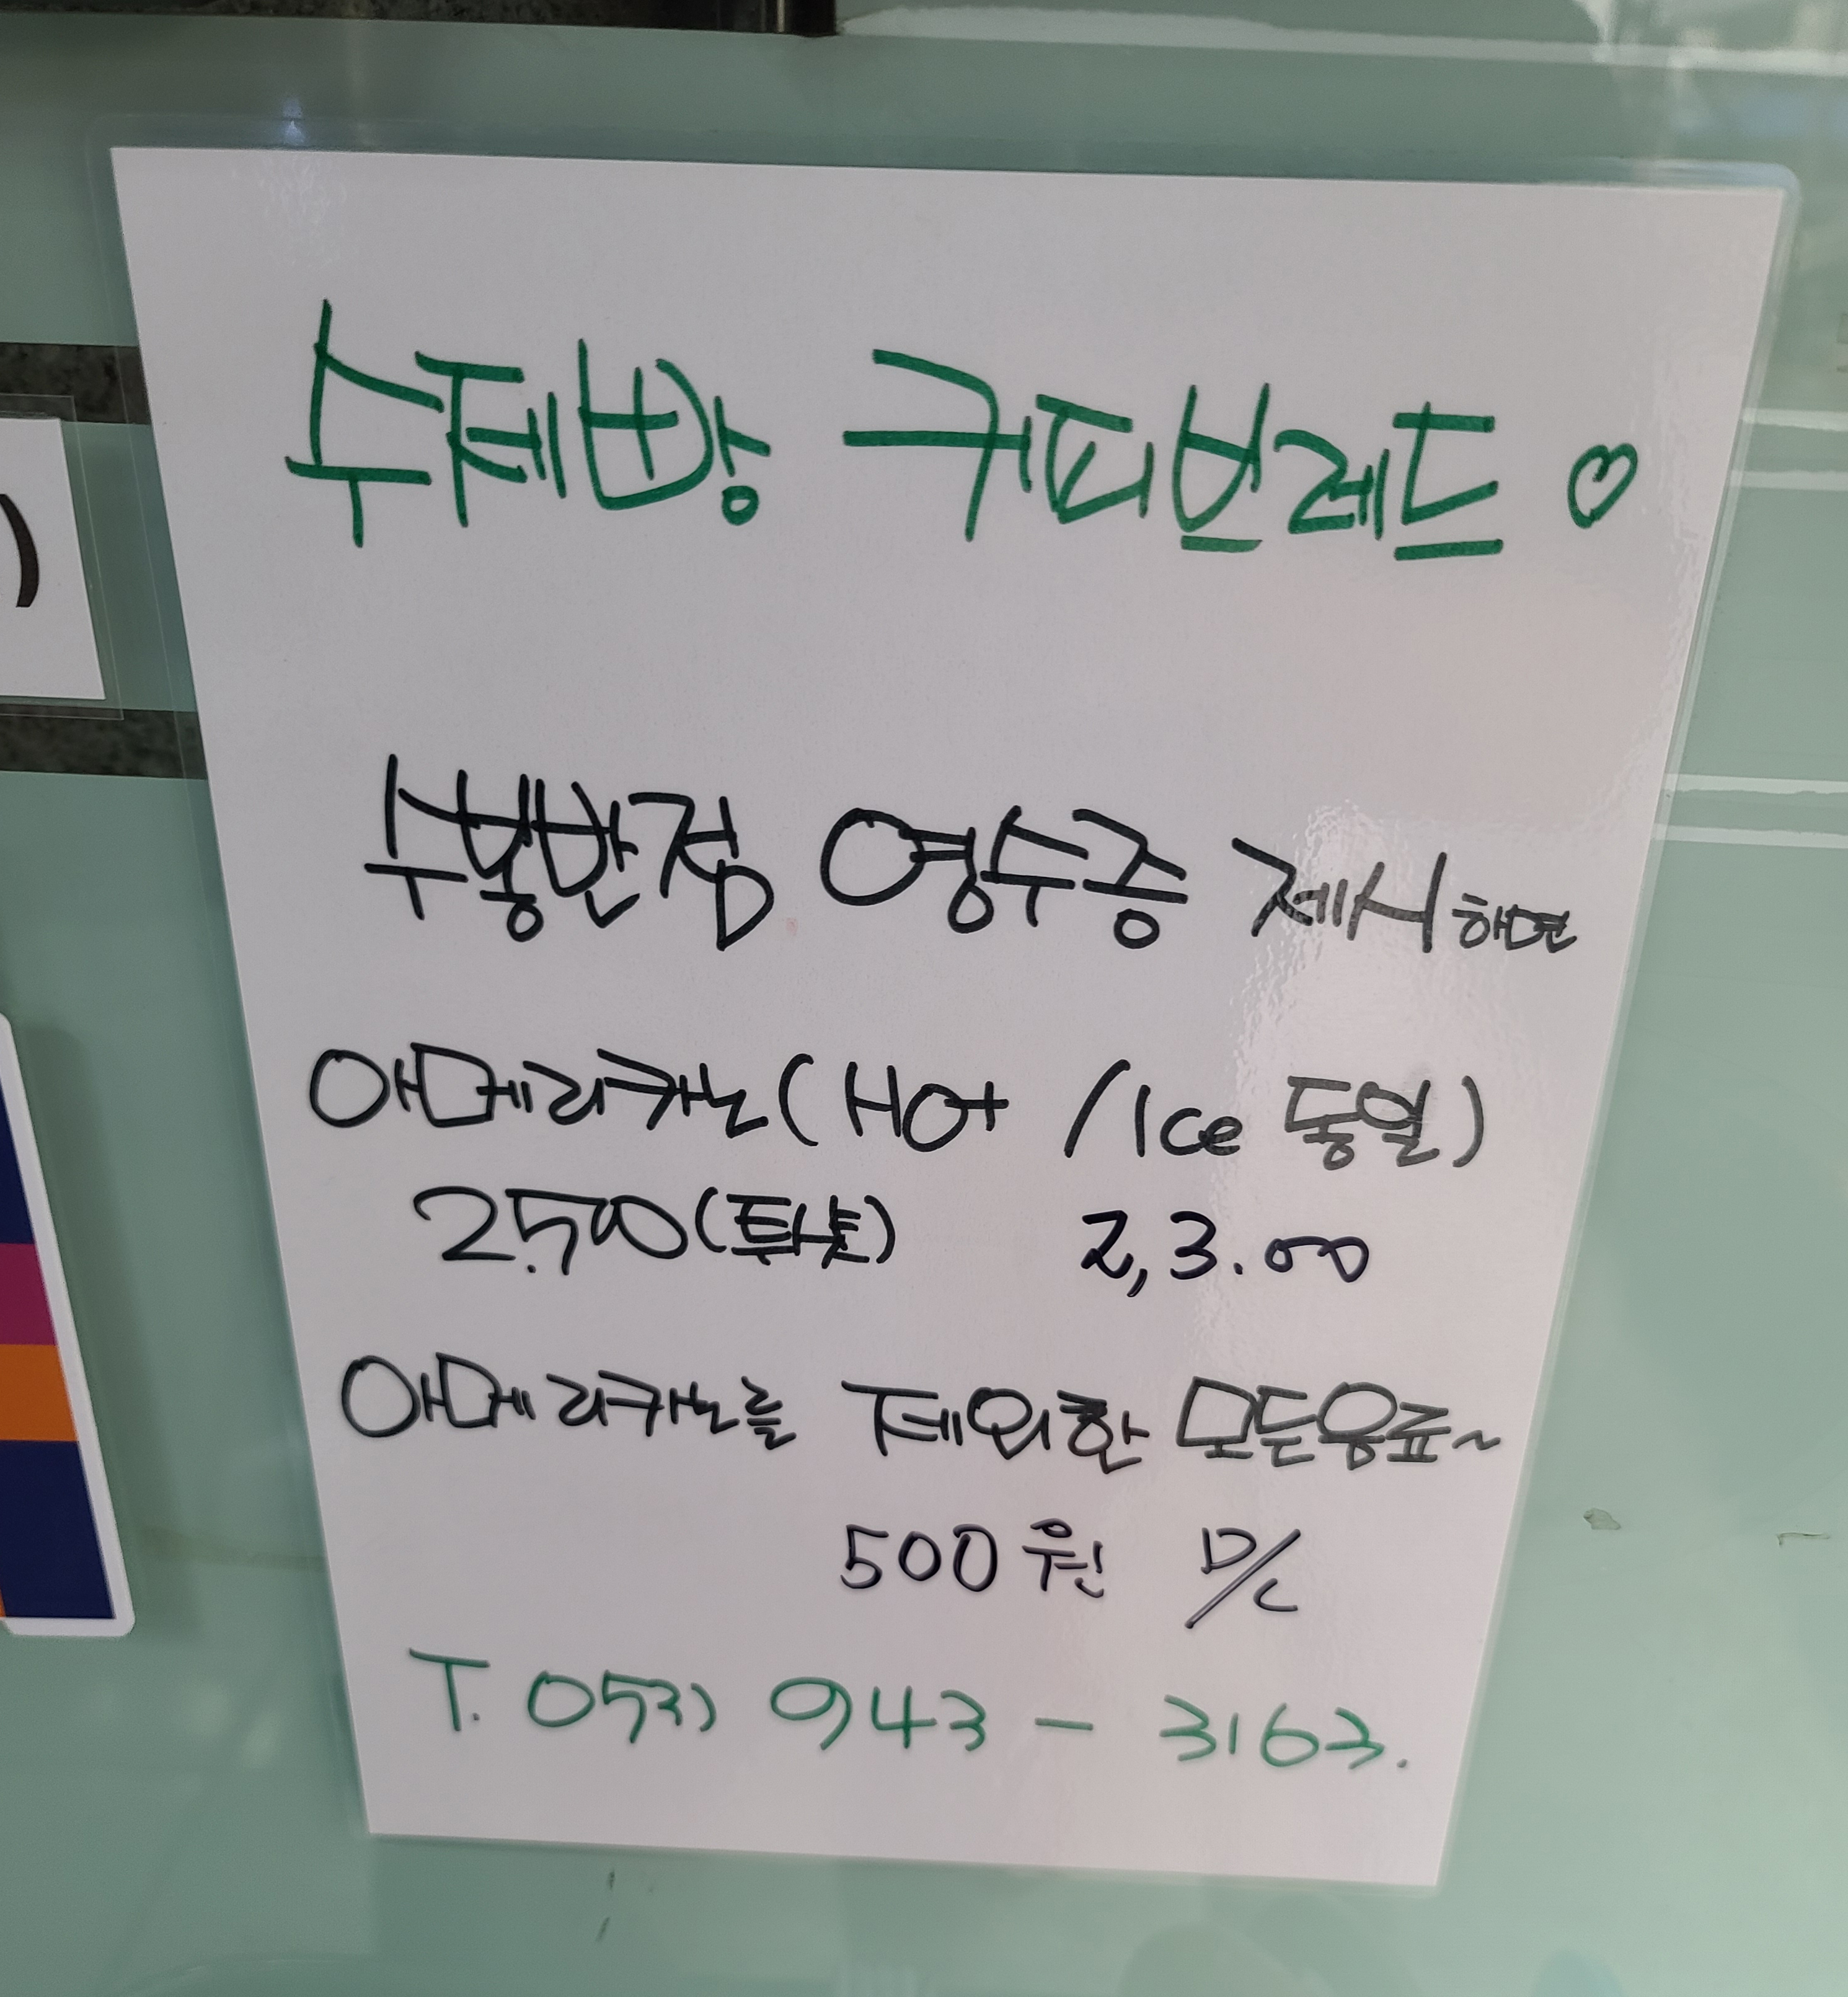 수제빵 커피브레드 ♡
수봉반점 영수증 제시하면
아메리카노(HOt /Ice 동일)
2.500(투샷) 2,3.00
아메리카노를 제외한 모든음료~
500원 D/C
T. 053) 943 - 3163.
)